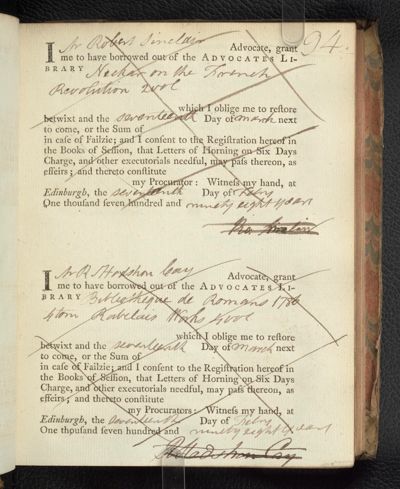 94.
I Mr Robert Sinclair Advocate, grant
me to have borrowed out of the ADVOCATES LI-
BRARY Neckar on the French
Revolution 2 vol
which I oblige me to reſtore
betwixt and the seventeenth Day of March next
to come, or the Sum of
in caſe of Failzie; and I conſent to the Regiſtration hereof in
the Books of Seſſion, that Letters of Horning on Six Days
Charge, and other executorials needful, may paſs thereon, as
effeirs; and thereto conſtitute
my Procurator: Witneſs my hand, at
Edinburgh, the seventeenth Day of Febry
One thouſand ſeven hundred and ninety eight years
I Mr R. Hodshon Cay Advocate, grant
me to have borrowed out of the ADVOCATES LI-
BRARY Bibliotheque de Romans 1786
4 tom Rabelais Works 5 vol
which I oblige me to reſtore
betwixt and the seventeenth Day of March next
to come, or the Sum of
in caſe of Failzie; and I conſent to the Regiſtration hereof in
the Books of Seſſion, that Letters of Horning on Six Days
Charge, and other executorials needful, may paſs thereon, as
effeirs; and thereto conſtitute
my Procurators: Witneſs my hand, at
Edinburgh, the seventeenth Day of Febry
One thouſand ſeven hundred and ninety eight years
R Hodshon Cay